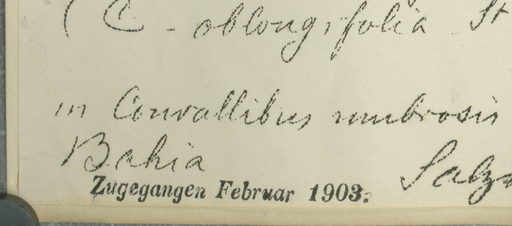 ( C. oblongifolia St
in Convallibus umbrosis
Bahia Salz
Zugegangen Februar 1903.